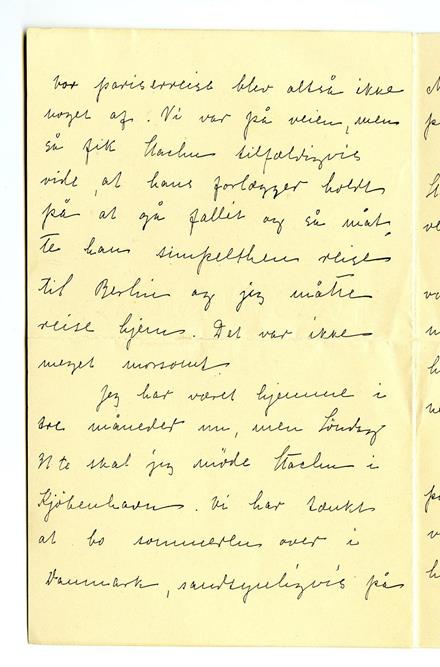 vor pariserreise blev altså ikke
noget af. Vi var på veien, men
så fik Stachu tilfældigvis
vide, at hans forlægger holdt
på at gå fallit og så måt-
te han simpelthen reise
til Berlin og jeg måtte
reise hjem. Det var ikke
meget morsomt.
Jeg har været hjemme i
tre måneder nu, men Söndag
skal jeg møde Stachu i
Kjøbenhavn. Vi har tænkt
at bo sommeren over i
Danmark, sandsynligvis på